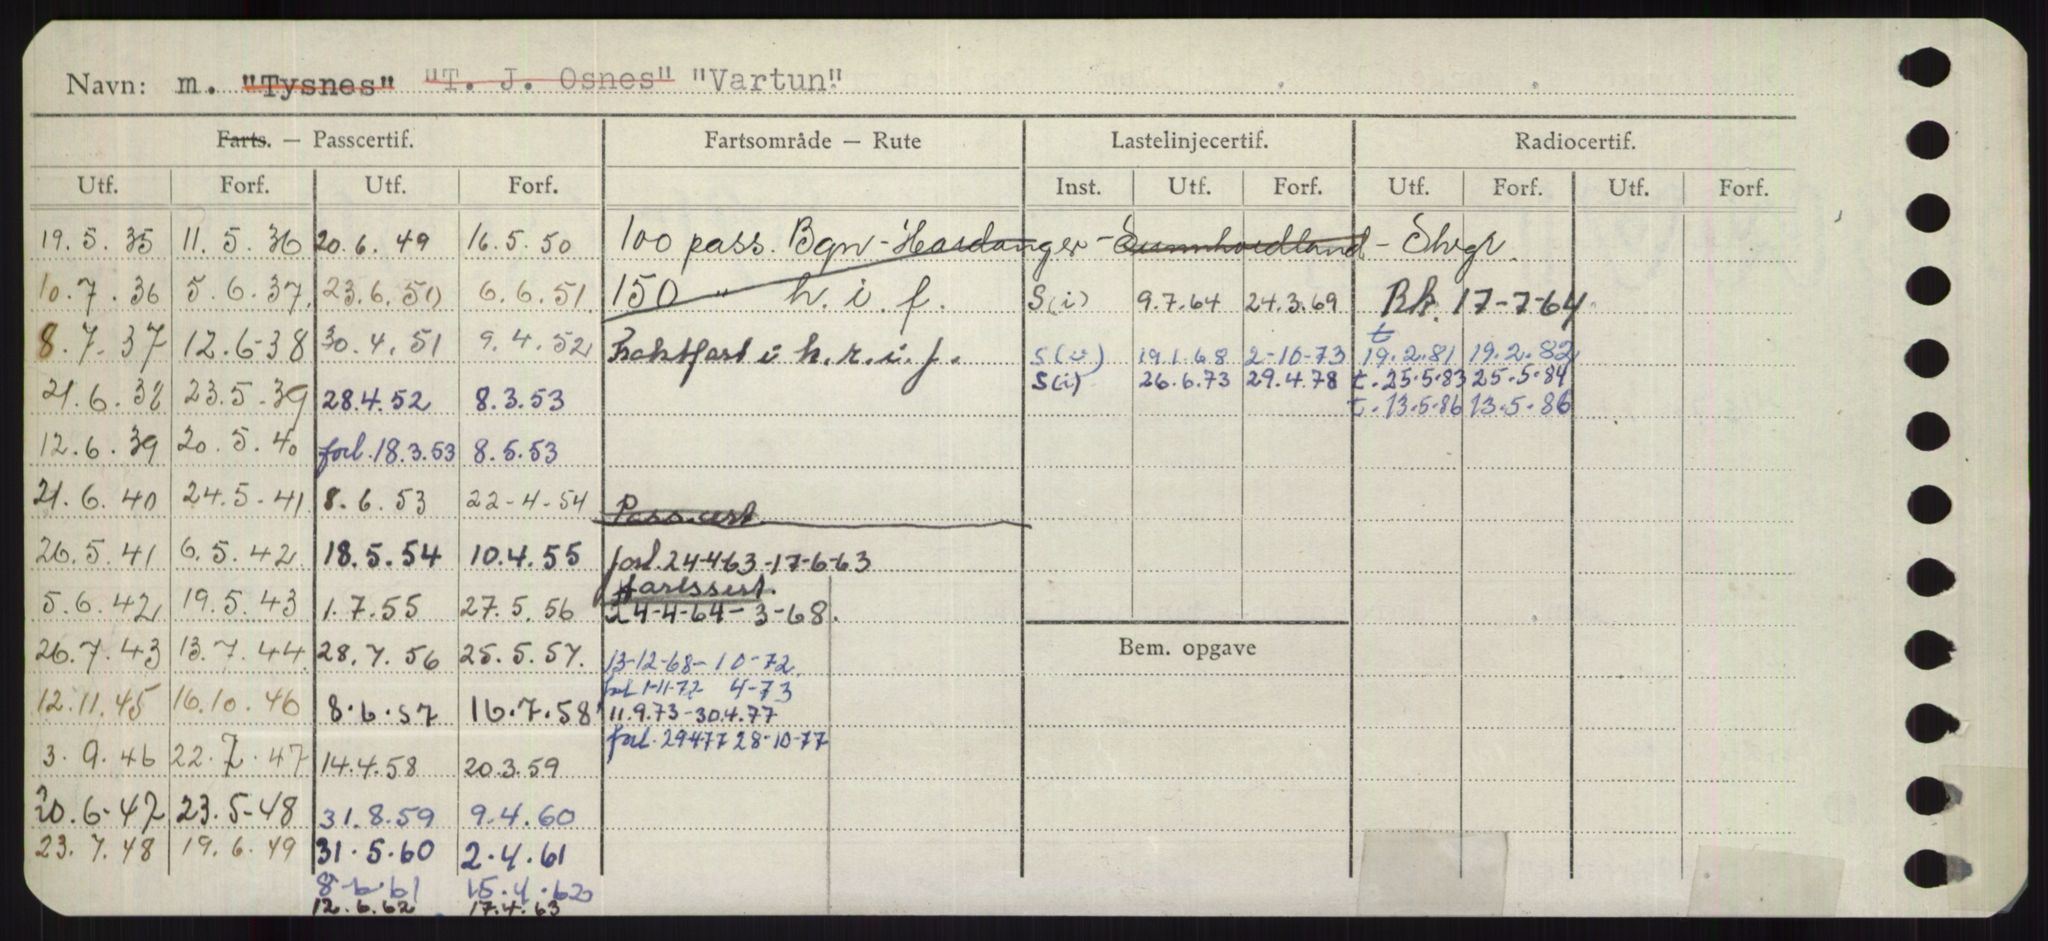 Navn: m. "Tysnes" "T. J. Osnes" "Vartun"
Farts. — Passcertif. Fartsområde — Rute Lastelinjecertif. Radiocertif.
Utf. Forf. Utf. Forf. Inst. Utf. Forf. Utf. Forf. Utf. Forf.
19. 5. 35 11. 5. 36 20. 6. 49 16. 5. 50 100 pass. Bgn - Hardanger - Sunnhordland -
10. 7. 36 5. 6. 37. 23. 6. 50 6. 6. 51. 150 " h. i. f. S(i) 9.7.64 24.3.69 Rk. 17-7-64
8. 7. 37 12. 6-38 30. 4. 51 9. 4. 52 Fraktfart i h. r. i. f. t
S(i) 19.1.68 2-10-73 19.2.81 19.2.82
21. 6. 38 23. 5. 39 28.4.52 8.3.53 S(i) 26.6.73 29.4.78 t. 25.5.83 25.5.84
t. 13.5.86 13.5.86
12. 6. 39 20. 5. 40 forl. 18.3.53 8.5.53
21. 6. 40 24. 5 - 41 8. 6. 53 22-4-54 Pass.cert.
26. 5. 41 6. 5. 42 18. 5. 54 10.4.55 forl. 24-4-63-17-6-63
Fartssert.
5. 6. 42 19. 5. 43 1. 7. 55 27. 5. 56 24-4-64- 3-68.
Bem. opgave
26. 7. 43 13. 7. 44 28. 7. 56 25. 5. 57. 13-12-68- 10-72
forl 1-11-72 4-73
12. 11. 45 16. 10. 46 8. 6. 57 16. 7. 58 11.9.73-30.4.77
forl. 29477 28-10-77
3. 9. 46 22. 7. 47 14.4.58 20.3.59
20. 6-47 23. 5-48 31. 8. 59 9. 4. 60
23. 7. 48 19. 6. 49 31. 5. 60 2. 4. 61
8-6.61 15.4.62
12. 6. 62 17.4. 63